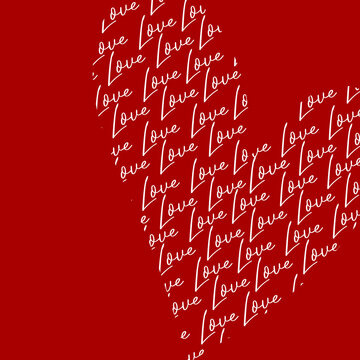 Love
ove Love Lo
Love Love Lo
ove Love Love
Love Love Love
ove Love Love Lo
Love Love
ve Love Love Love
ove Love Love Love
Love Love Love Love
Love Love Love Love
ove Love Love Love
Love Love Love Love
ve Love Love Love
ove Love Love
e Love Love
ve